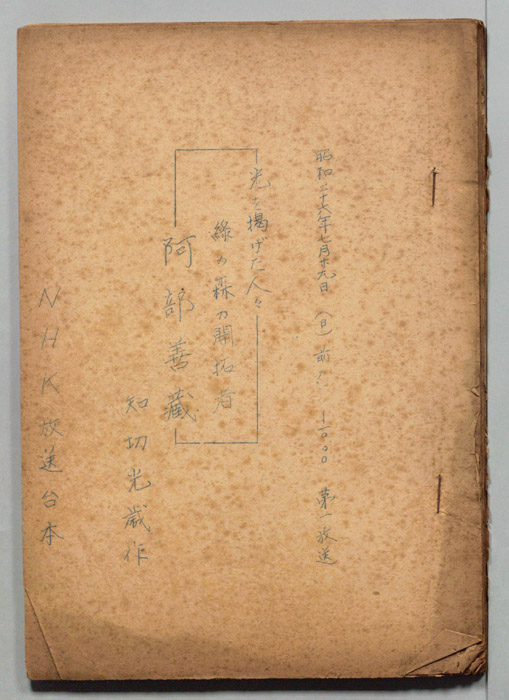 昭和二十六年七月廿九日 (日) 前 10.00 第一放送
光を掲げた人々
緑の森の開拓者
阿部善藏
知切光歳作
NHK放送台本